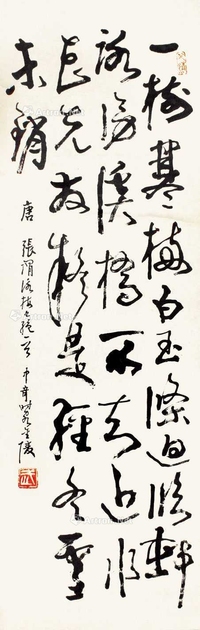 一樹寒梅白玉條迥臨邨
路傍溪橋不知近水
花先發疑是經冬雪
未銷
唐 張謂詠梅七絕一首 金陵